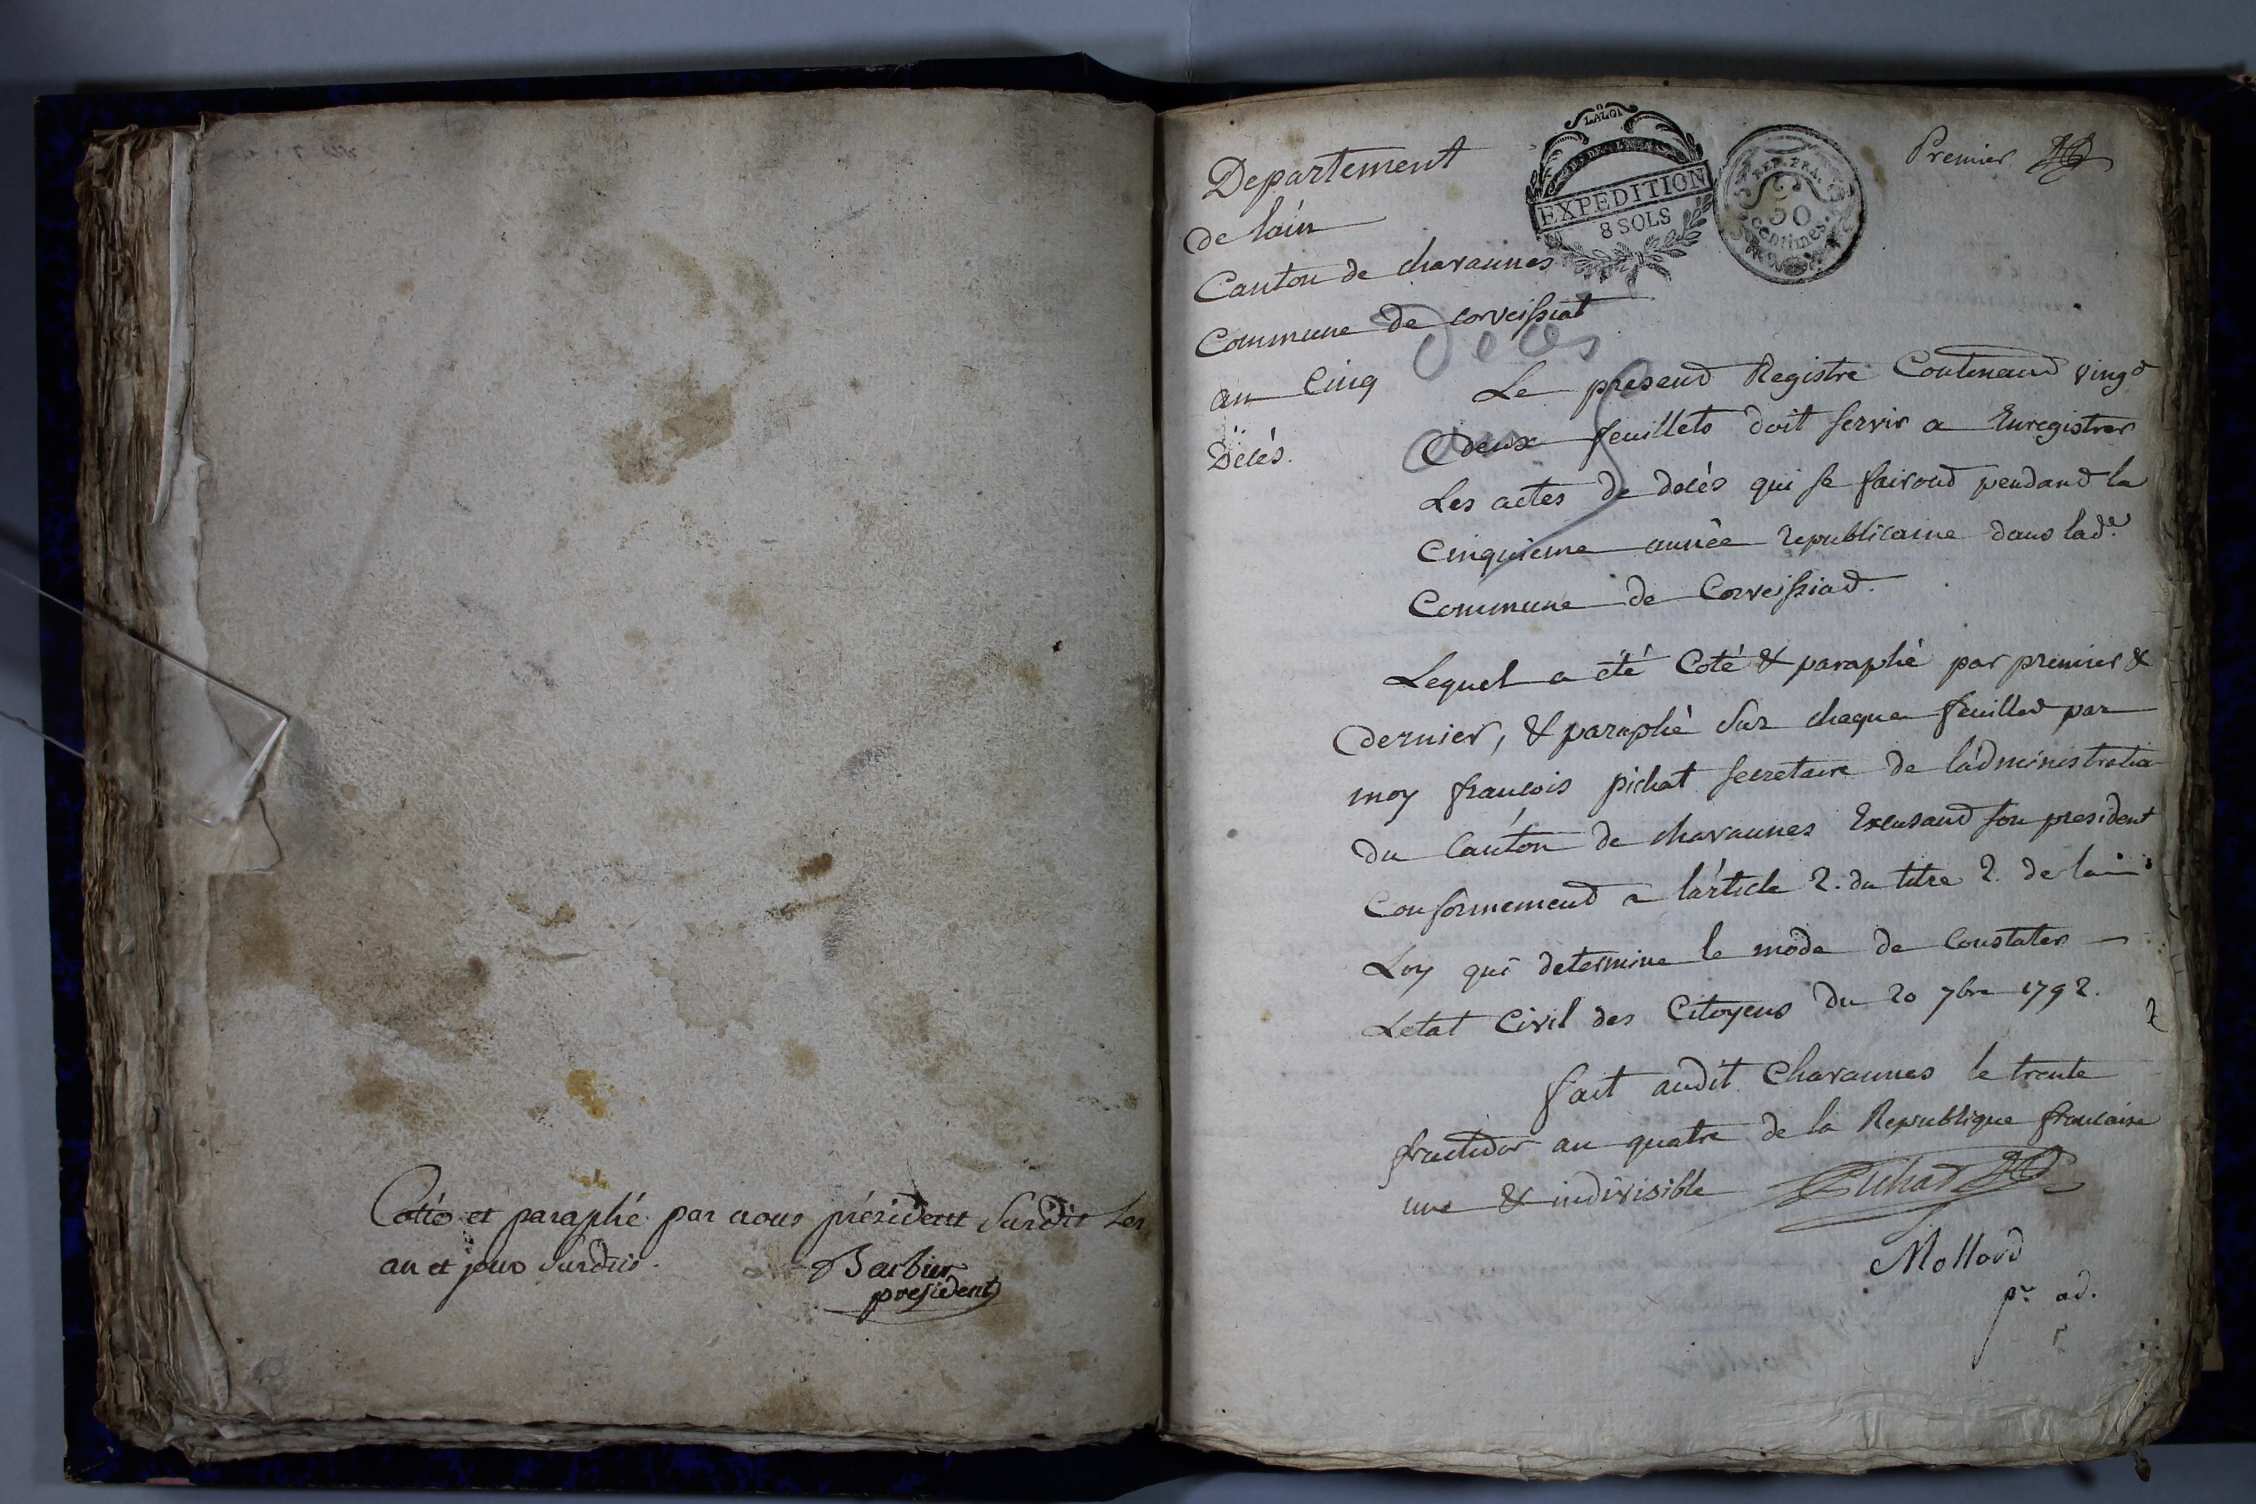 Cotté et paraphé par nous président Surdit les
an et jour Surdits.
Barbier
président
Premier
LA LOI
EXPEDITION
8 SOLS
REP. FRA.
50
centimes.
Departement
de lain
Canton de chavannes
Commune de corveissiat
an Cinq
Décès.
Décès
an 5
Le presend Registre Contenand vingd
deux feuillets doit servir a Enregistrer
Les actes de décès qui se fairond pendand la
Cinquieme année republicaine dans lade.
Commune de Corveissiad.
Lequel a été Coté & paraphé par premier &
dernier, & paraphé Sur chaque feuilled par
moy francois pichat secretaire de ladministratio
du Canton de chavannes Excusand son president
Conformemend a larticle 2. du titre 2. de la
Loy qui determine le mode de Constater
Letat Civil des Citoyens du 20 7bre 1792.
fait audit Chavannes le trente
fructidor an quatre de la Republique francaise
une & indivisible Pichad
Mollard
pr. ad.